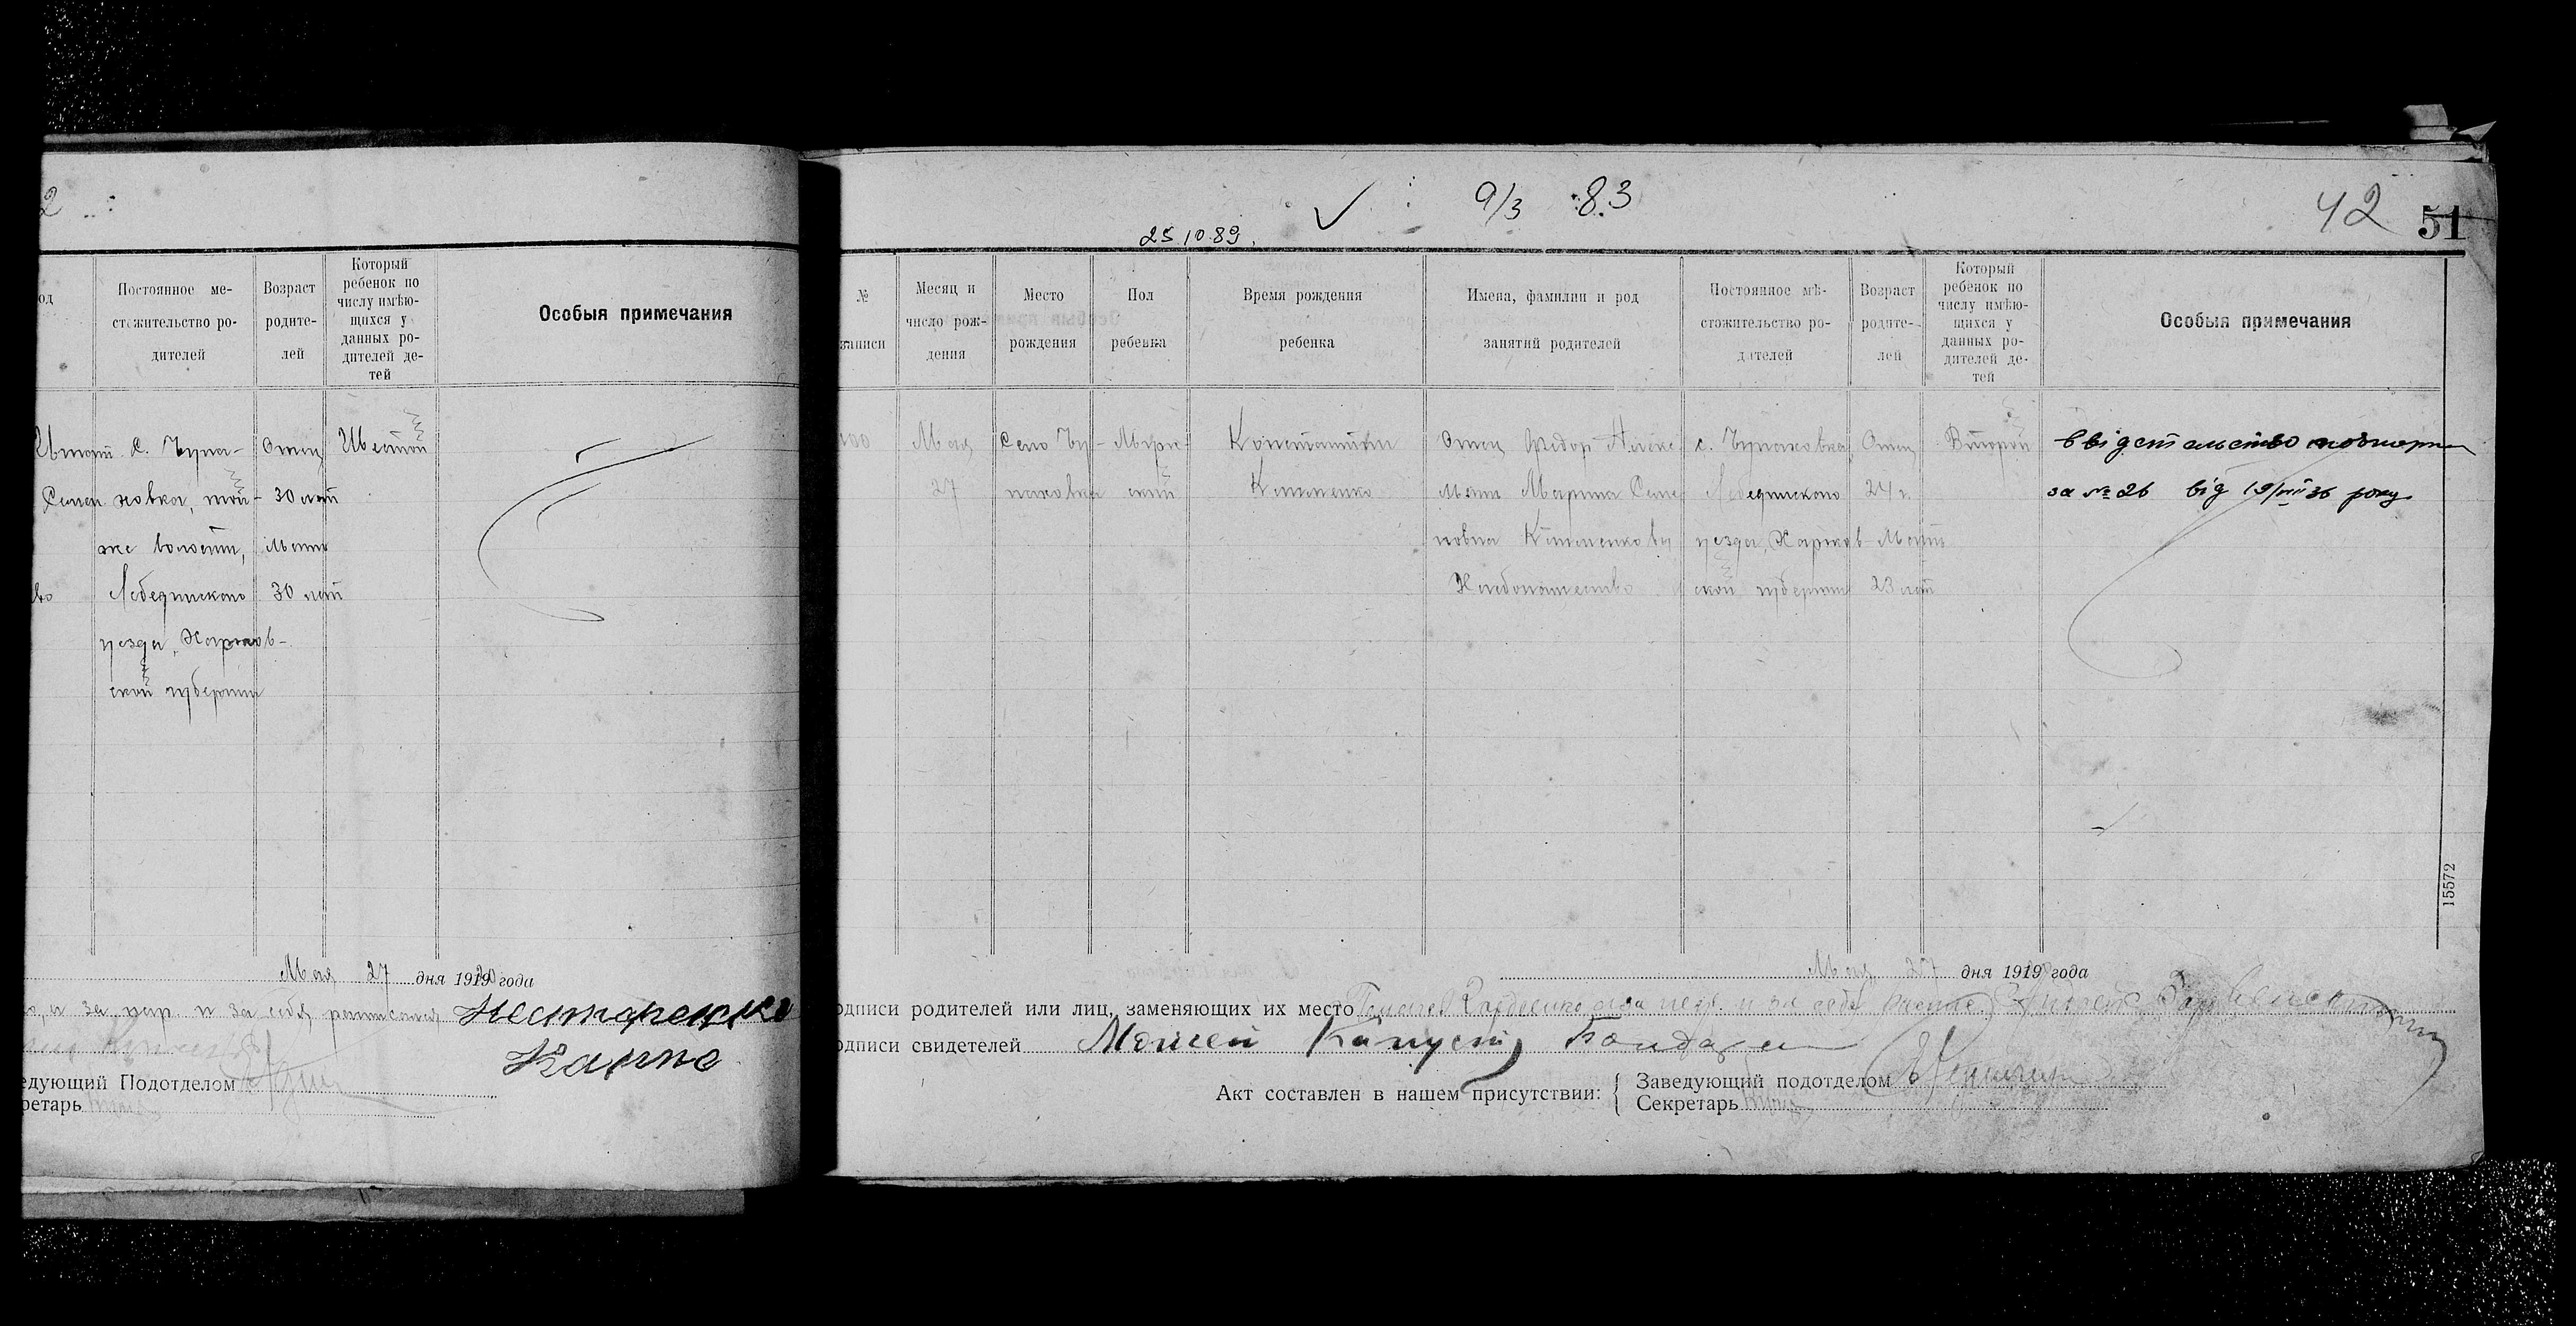 2
од
Постоянное ме-
стожительство ро-
дителей
Возраст
родите-
лей
Который
ребенок по
числу имѣю-
щихся у
данных ро-
дителей де-
тей
Особыя примечания
с. Чупа-
ховка, той-
же волости,
Лебединского
уезда, Харьков-
ской губернии
Отец
30 лет
Мать
30 лет
Шестой
Мая 27 дня 1919 года
за себя расписался Нестеренко
Карпо
едующий Подотделом
ретарь
25.10.89.
9/3 83
42
51
№
записи
Месяц и
число рож-
дения
Место
рождения
Пол
ребенка
Время рождения
ребенка
Имена, фамилии и род
занятий родителей
Постоянное мѣ-
стожительство ро-
дителей
Возраст
родите-
лей
Который
ребенок по
числу имѣю-
щихся у
данных ро-
дителей де-
тей
Особыя примечания
100
Мая
27
Село Чу-
паховка
Муж-
ской
Константин
Клименко
Отец Федор Алекс
мать Марина Семе
новна Клименковы
Хлебопашество
с. Чупаховка
Лебединского
уезда, Харьков-
ской губернии
Отец
24 г.
Мать
23 лет
Второй
за № 26 від 19/III 36 року
15572
Мая 27 дня 1919 года
одписи родителей или лиц, заменяющих их место
одписи свидетелей Моисей Капуст
Акт составлен в нашем присутствии:
Заведующий подотделом
Секретарь